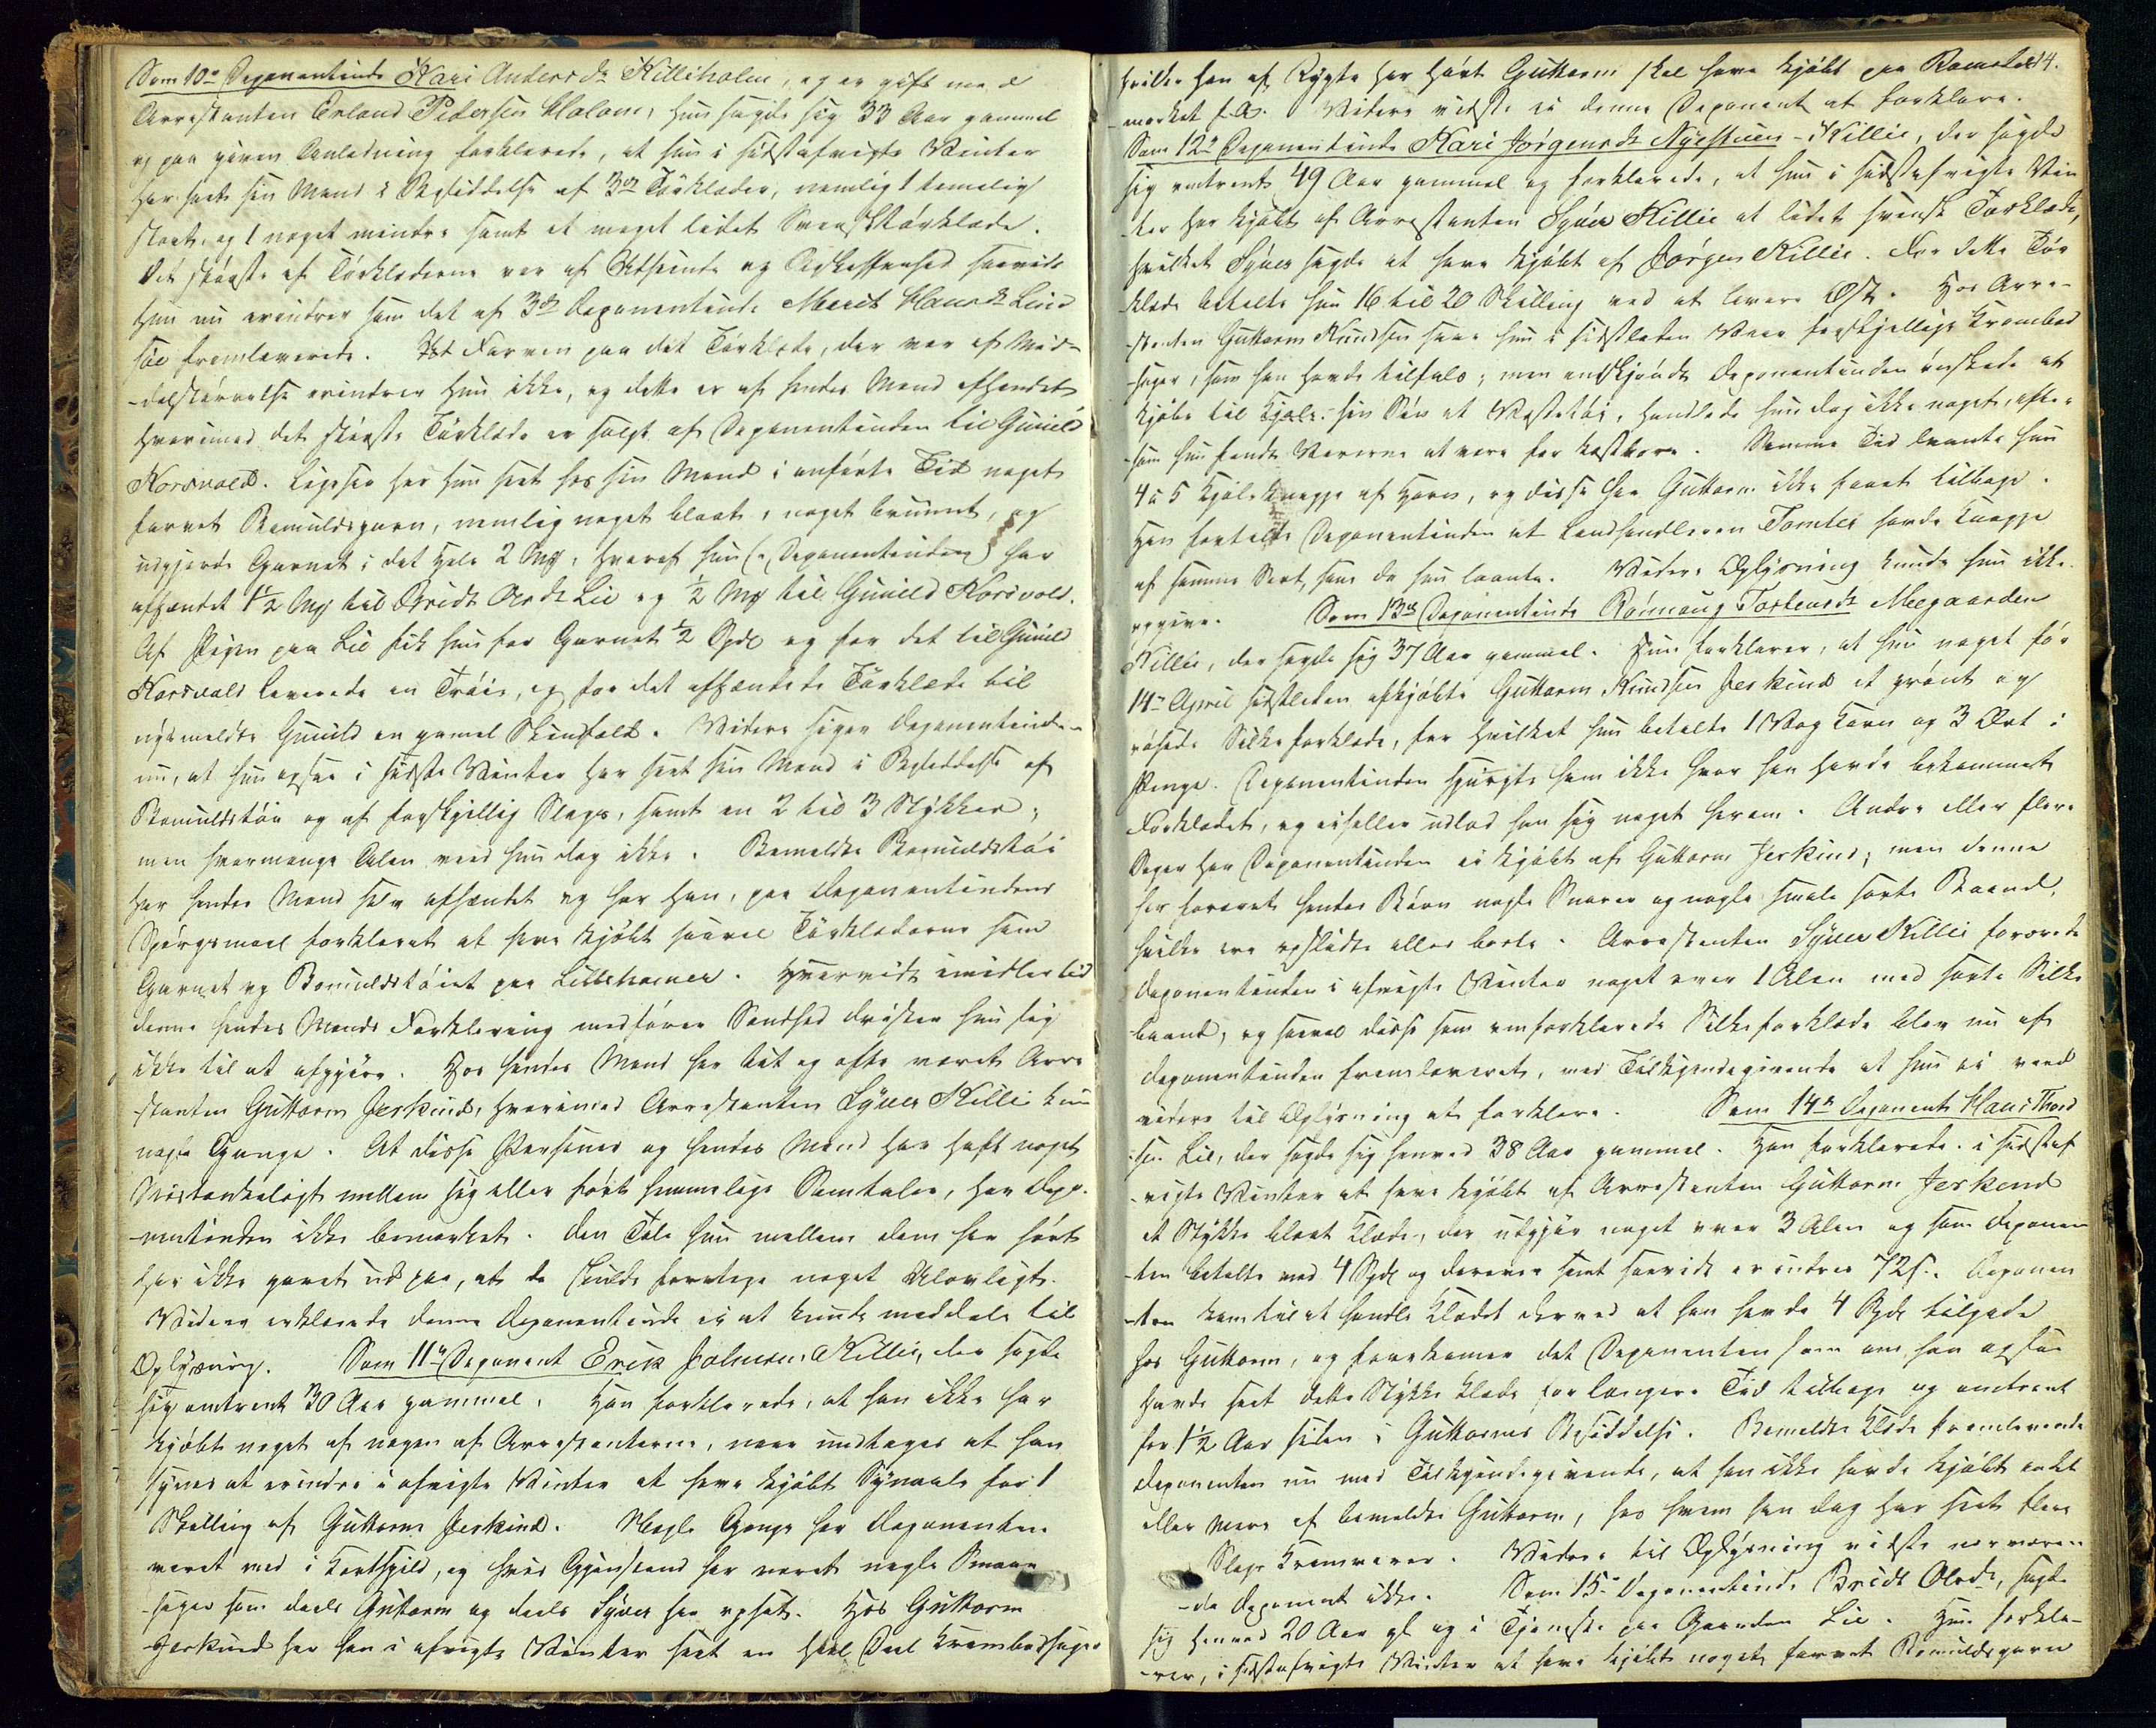 Som 10de Deponentinde Kari Andersdr Killiholm, og er gift med
Arrestanten Erland Pedersen Holom, hun sagde sig 33 Aar gammel
og paa given Anledning forklarede, at hun i sidstafvigte Vinter
har seet sin Mand i Besiddelse af 3de Tørklæder, nemlig 1 temelig
stort, og 1 noget mindre samt et meget lidet Svensk Tørklæde.
Det største af Tørklæderne var af Udseende og Beskaffenhed saavidt
hun nu erindrer som det af 3de Deponentinde Marit Hansdr Lies
sie fremleverede. Farven paa det Tørklæde, der var af Mid-
-delstørrelse erindrer hun ikke, og dette er af hendes Mand afhendet
hvorimod det største Tørklæde er solgt af Deponentinden til Gunild
Korsvold. Ligesaa har hun seet hos sin Mand i anførte Tid noget
farvet Bomuldsgarn, nemlig noget blaat, noget bruunt, og
udgjorde Garnet i det Hele 2 Mg, hvoraf hun (: Deponentinden) har
afhændet 1½ Mg til Bridt Olsdr Lie og ½ Mg til Gunild Korsvold.
Af Pigen paa Lie fik hun for Garnet ½ Spd og for det til Gunild
Korsvold leverede en Trøie, og for det afhændede Tørklæde til
nysmeldte Gunild en gamel Skindfeld. Videre siger Deponentinde-
n, at hun ogsaa i sidste Vinter har seet sin Mand i Besiddelse af
Bomuldstøi og af forskjellig Slags, samt en 2 til 3 Stykker;
men hvormange Alen veed hun dog ikke. Bemeldte Bomuldstøi
har hendes Mand selv afhændet og har han, paa Deponentindens
Spørgsmaal forklaret at have kjøbt saavel Tørklæderne som
Garnet og Bomuldstøiet paa Lillehamer. Hvorvidt imidlertid
denne hendes Mands Forklaring medfører Sandhed drister hun sig
ikke til at afgjøre. Hos hendes Mand har tit og ofte været Arre
stanten Guttorm Jerkind, hvorimod Arrestanten Syver Killi kun
nogle Gange. At disse Personer og hendes Mand har haft noget
Mistænkeligt mellem sig eller ført hemmelige Samtaler, har Depo-
nentinden ikke bemærket. Den Tale hun mellem dem har hørt
har ikke gaaet ud paa, at de skulde foretage noget Ulovligt.
Videre erklærede denne Deponentinde ei at kunde meddele til
Oplysning. Som 11te Deponent Erick Johnsen Killie, der sagde
sig omtrent 30 Aar gammel. Han forklarede, at han ikke har
kjøbt noget af nogen af Arrestanterne, naar undtages at han
synes at erindre i afvigte Vinter at have kjøbt Synaale for 1
Skilling af Guttorm Jerkind. Nogle Gange har Deponenten
været med i Kortspil, og hvis Gjenstand har været nogle Smaae
-sager som deels Guttorm og deels Syver har opsat. Hos Guttorm
Jerkind har han i afvigte Vinter seet en heel Deel Krambodsager
hvilke han af Rygte har hørt Guttorm skal have kjøbt paa Romsdals 14.
-market f. A. Videre vidste ei denne Deponent at forklare.
Som 12te Deponentinde Kari Jørgensdr Nyestuen-Killie, der sagde
sig omtrent 49 Aar gammel og forklarede, at hun i sidstafvigte Vin
ter har kjøbt af Arrestanten Syver Killie et lidet svensk Tørklæde,
hvilket Syver sagde at have kjøbt af Jørgen Killie. For dette Tør
klæde betalte hun 16 til 20 Skilling ved at levere Ost. Hos Arre-
-stanten Guttorm Knudsen saae hun i sidstleden Vaar forskjellige Krambod
-sager, som han havde tilfals; men endskjøndt Deponentinden ønskede at
kjøbe til sin Søn et Vestetøi, handlede hun dog ikke noget, efter
som hun fandt Varerne at være for kostbare. Samme Tid laante hun
4 a 5 Kjoleknappe af Horn, og disse har Guttorm ikke faaet tilbage.
Han fortalte Deponentinden at Landhandleren Tomter havde Knappe
af samme Sort, som de hun laante. Videre Oplysning kunde hun ikke
opgive. Som 13de Deponentinde Rønnaug Torstensdr Melgaarden
Killie, der sagde sig 37 Aar gammel. Hun forklarer, at hun noget før
14de April sidstleden afkjøbte Guttorm Knudsen Jerkind et grønt og
røsede Silkeforklæde, for hvilket hun betalte 1 Vog Korn og 3 Ort i
Penge. Deponentinden spurgte ham ikke hvor han havde bekommet
Forklædet, og eiheller udlod han sig noget herom. Andre eller flere
Sager har Deponentinden ei kjøbt af Guttorm Jerkind; men denne
har foræret hendes Børn nogle Snorer og nogle smale sorte Baand,
hvilke ere opslidte eller borte. Arrestanten Syver Killie forærede
Deponentinden i afvigte Vinter noget over 1 Alen med sorte Silke
baand, og saavel disse som omforklarede Silkeforklæde blev nu af
Deponentinden fremleveret, med Tilkjendegivende at hun ei veed
videre til Oplysning at forklare. Som 14de Deponent Hans Thord
sen Lie, der sagde sig henved 38 Aar gammel. Han forklarede i sidstaf
-vigte Vinter at have kjøbt af Arrestanten Guttorm Jerkind
et Stykke blaat Klæde, der udgjør noget over 3 Alen og som Deponen
-ten betalte med 4 Spd og derover samt saavidt erindres 72 s. Deponen
-ten kom til at handle Klædet derved at han havde 4 Spd tilgode
hos Guttorm, og forekomer det Deponenten som om han ogsaa
havde seet dette Stykke Klæde for længere Tid tilbage og omtrent
for 1½ Aar siden i Guttorms Besiddelse. Bemeldte Klæde fremleverede
Deponenten nu med Tilkjendegivende, at han ikke havde kjøbt andet
eller mere af bemeldte Guttorm, hos hvem han dog har seet flere
Slags Kramvarer. Videre til Oplysning vidste nærværen
-de Deponent ikke. Som 15de Deponentinde Bridt Olsdr, sagde
sig henved 20 Aar gl og i Tjeneste paa Gaarden Lie. Hun forkla-
-rer, i sidstafvigte Vinter at have kjøbt noget farvet Bomuldsgarn